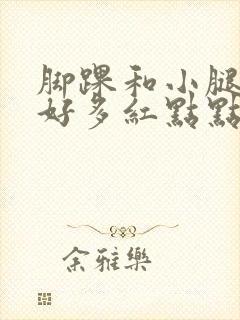 腳踝和小腿
好多紅點點
余雅樂